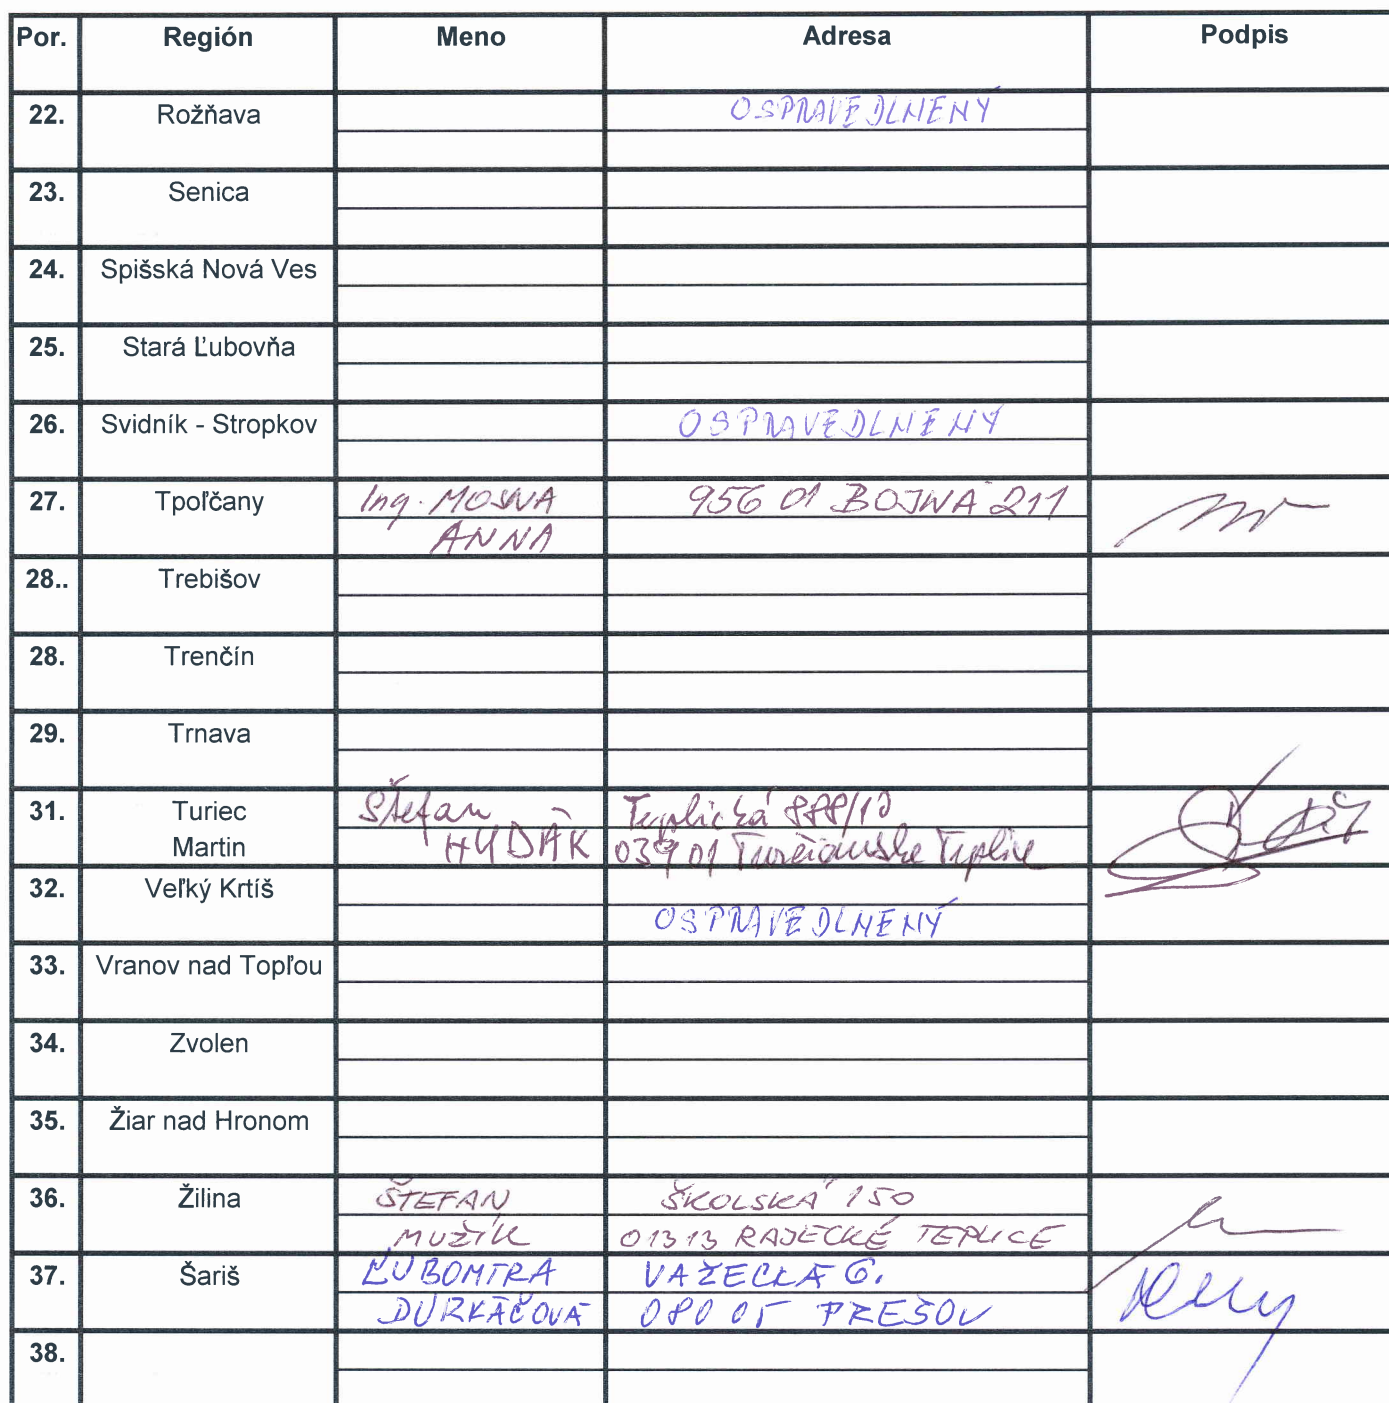 Por. Región Meno Adresa Podpis
22. Rožňava OSPRAVEDLNENÝ
23. Senica
24. Spišská Nová Ves
25. Stará Ľubovňa
26. Svidník - Stropkov OSPRAVEDLNENÝ
27. Tpoľčany Ing. MOSNA 956 01 BOJNÁ 211
ANNA
28.. Trebišov
28. Trenčín
29. Trnava
31. Turiec Štefan Teplická 888/10
Martin HUDÁK 039 01 Turčianske Teplice
32. Veľký Krtíš
OSPRAVEDLNENÝ
33. Vranov nad Topľou
34. Zvolen
35. Žiar nad Hronom
36. Žilina ŠTEFAN ŠKOLSKÁ 150
MUŽÍK 013 13 RAJECKÉ TEPLICE
37. Šariš ĽUBOMÍRA VAŽECKÁ 6.
DURKÁČOVÁ 080 05 PREŠOV
38.